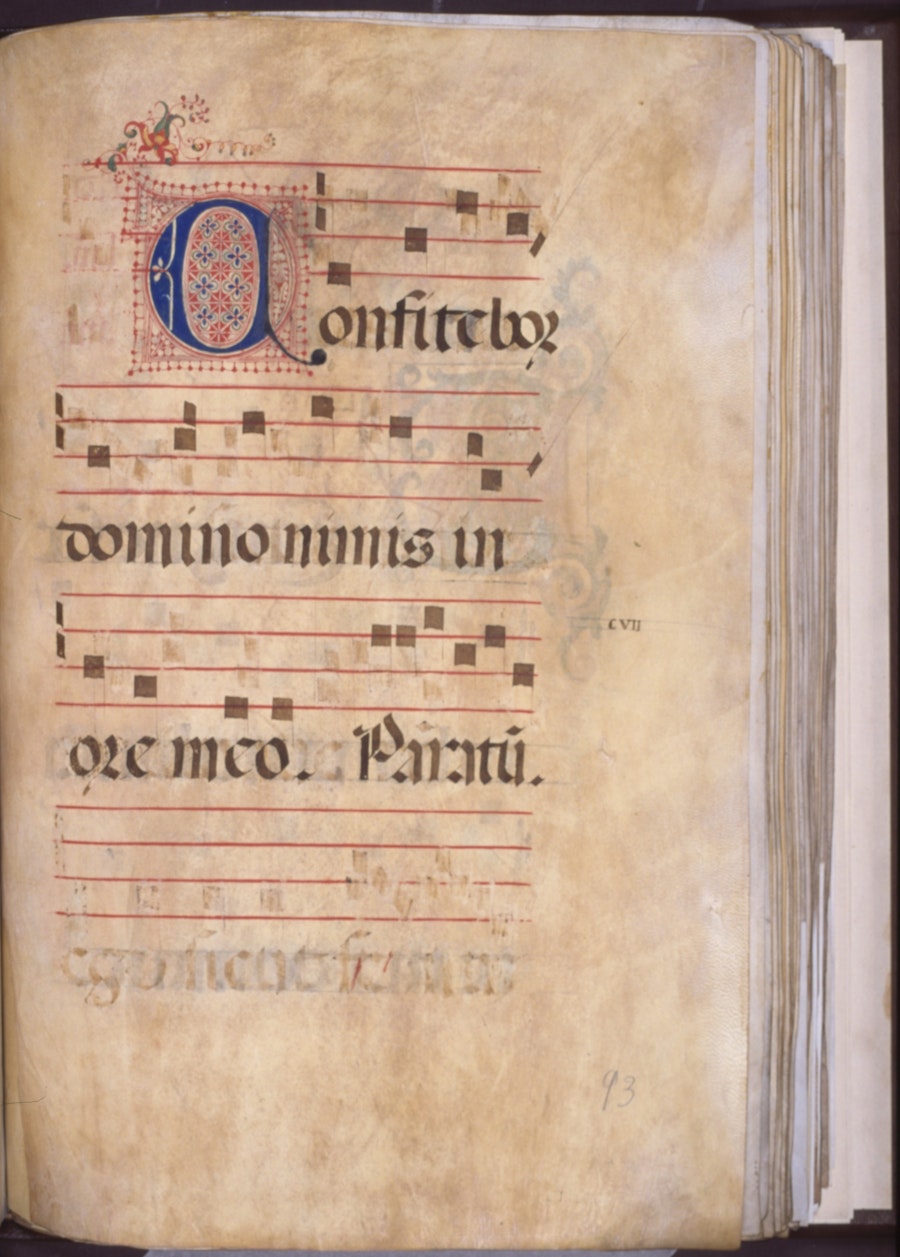 Confitebor
domino nimis in
ore meo. Paratū.
cvii
93